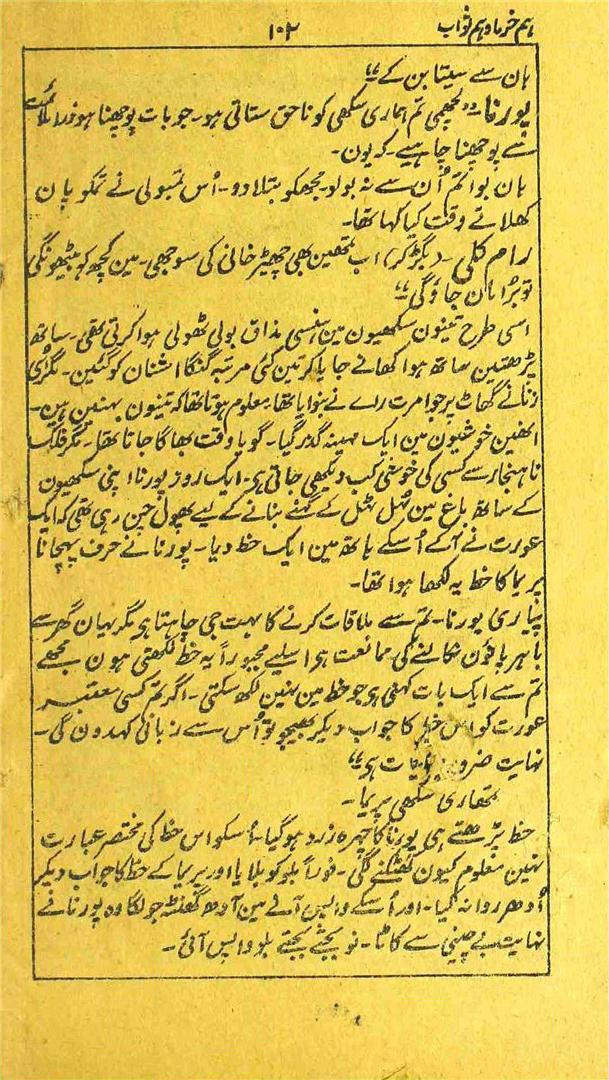 ہم خرما و ہم ثواب
۱۰۲
ہان سے سیتا بن کے‘‘
پورنا۔ ’’لچھمی تم ہماری سکھی کو ناحق ستاتی ہو۔ جو بات پوچھنا ہو ذرا ملائمت
سے پوچھنا چاہیے۔ کہ یون۔
ہان بوا تم اُن سے نہ بولو۔ مجھکو بتلا دو۔ اُس تمبولی نے تمکو پان
کھلاتے وقت کیا کہا تھا۔
رام کلی۔ (بگڑ کر) اب تمھین بھی چھیڑ خانی کی سوجھی۔ مین کچھ کہ بیٹھونگی
تو بُرا مان جاؤ گی‘‘
اسی طرح تینون سکھیون مین ہنسی مذاق بولی ٹھولی ہوا کرتی تھی۔ ساتھ
پڑھتین ساتھ ہوا کھانے جایا کرتین کئی مرتبہ گنگا اشنان کو گئین۔ مگر اُسی
زنانے گھاٹ پر جو امرت راے نے بنوایا تھا۔ معلوم ہوتا تھا کہ تینون بہنین ہین۔
انھین خوشیون مین ایک مہینہ گذر گیا۔ گویا وقت بھاگا جاتا تھا۔ مگر فلک
ناہنجار سے کسی کی خوشی کب دیکھی جاتی ہی۔ ایک روز پورنا اپنی سکھیون
کے ساتھ باغ مین ٹہل ٹہل کے گہنے بنانے کے لیے پھول چن رہی تھی کہ ایک
عورت نے آکے اُسکے ہاتھ مین ایک خط دیا۔ پورنا نے حرف پہچانا
پریما کا خط یہ لکھا ہوا تھا۔
پیاری پورنا۔ تم سے ملاقات کرنے کا بہت جی چاہتا ہی مگر یہان گھر سے
باہر پاؤن نکالنے کی ممانعت ہی اسلیے مجبوراً یہ خط لکھتی ہون مجھے
تم سے ایک بات کہنی ہی جو خط مین نہین لکھ سکتی۔ اگر تم کسی معتبر
عورت کو اس خط کا جواب دیکر بھیجو تو اُس سے زبانی کہدون گی۔
نہایت ضروری بات ہی‘‘
تمھاری سکھی پریما۔
خط پڑھتے ہی پورنا کا چہرہ زرد ہو گیا۔ اُسکو اس خط کی مختصر عبارت
نہین معلوم کیون کھٹکنے لگی۔ فوراً بلو کو بلایا اور پریما کے خط کا جواب دیکر
اُدھر روانہ کیا۔ اور اُسکے واپس آنے مین آدھ گھنٹہ جو لگا وہ پورنا نے
نہایت بے چینی سے کاٹا۔ نو بجتے بجتے بلو واپس آئی۔